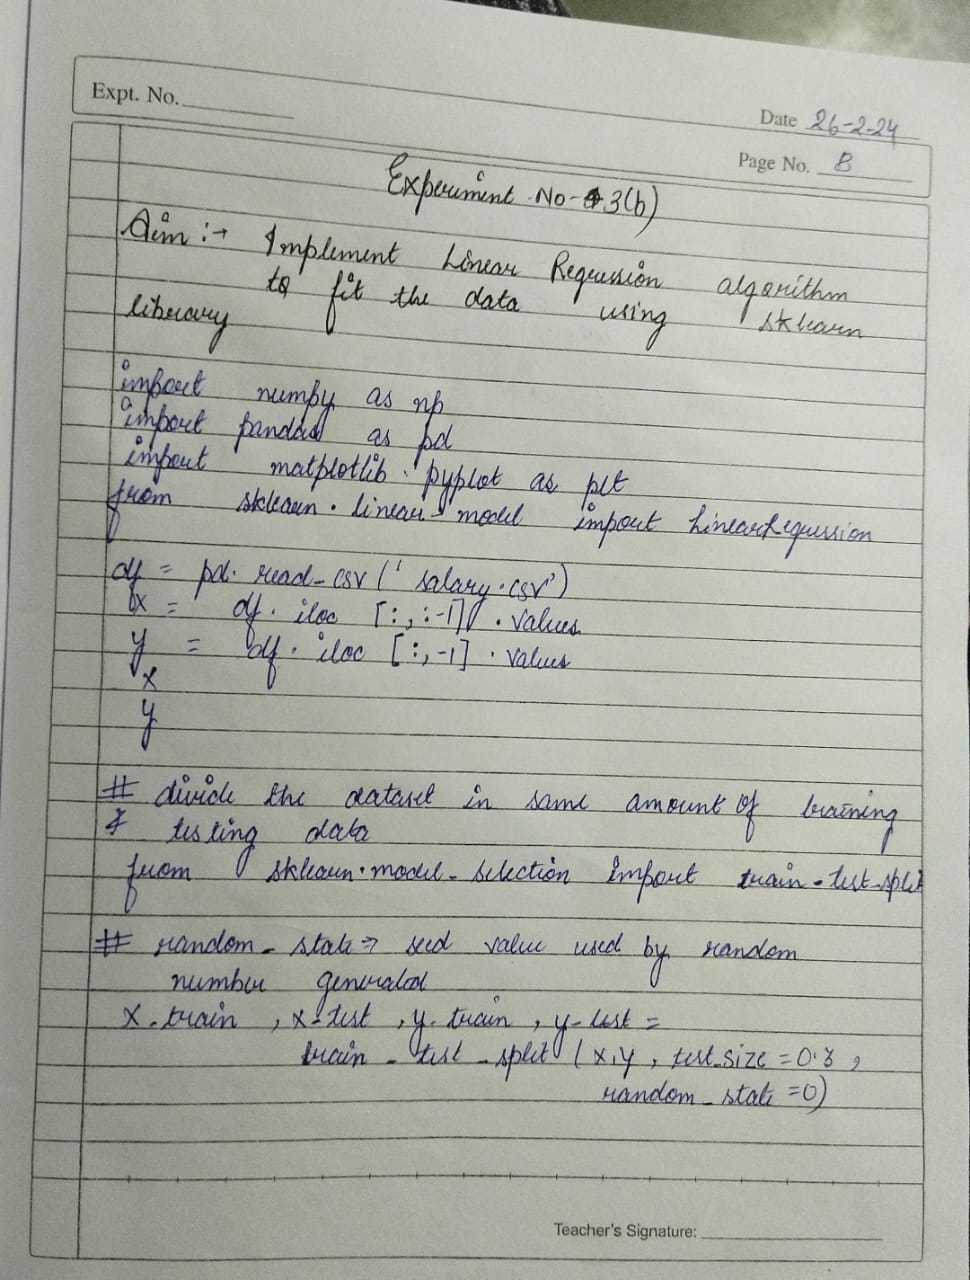 Expt. No.
Date 26-2-24
Page No. 8
Experiment No- 3(b)
Aim :→ Implement Linear Regression algorithm
to fit the data using sklearn
library
import numpy as np
import pandas as pd
import matplotlib.pyplot as plt
from sklearn.linear_model import LinearRegression
df = pd.read_csv('salary.csv')
x = df.iloc [:,:-1].values
y = df.iloc [:,-1].values
x
y
# divide the dataset in same amount of training
& testing data
from sklearn.model_selection import train_test_split
# random_state => seed value used by random
number generated
x_train, x_test, y_train, y_test =
train_test_split (x,y, test_size = 0.3,
random_state =0)
Teacher's Signature: